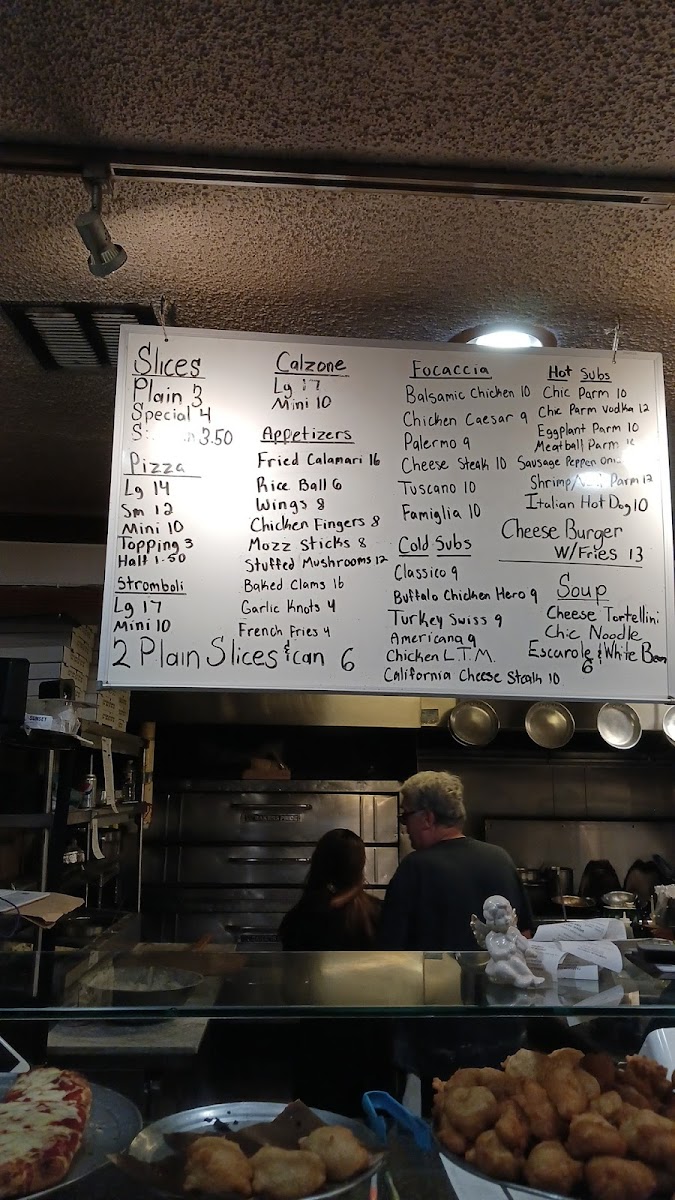 Slices
Plain 3
Special 4
3.50
Pizza
Lg 14
Sm 12
Mini 10
Topping 3
Half 1.50
Stromboli
Lg 17
Mini 10
2 Plain Slices & can 6
Calzone
Lg 17
Mini 10
Appetizers
Fried Calamari 16
Rice Ball 6
Wings 8
Chicken Fingers 8
Mozz Sticks 8
Stuffed Mushrooms 12
Baked Clams 16
Garlic Knots 4
French Fries 4
Focaccia
Balsamic Chicken 10
Chicken Caesar 9
Palermo 9
Cheese Steak 10
Tuscano 10
Famiglia 10
Cold Subs
Classico 9
Buffalo Chicken Hero 9
Turkey Swiss 9
Americana 9
Chicken L.T.M.
California Cheese Steak 10
Hot Subs
Chic Parm 10
Chic Parm Vodka 12
Eggplant Parm 10
Meatball Parm
Sausage Pepper
Shrimp Parm 12
Italian Hot Dog 10
Cheese Burger
W/Fries 13
Soup
Cheese Tortellini
Chic Noodle
Escarole & White Bean
6